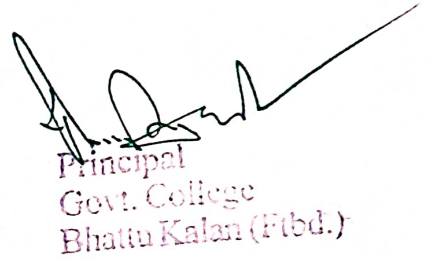 Principal
Govt. College
Bhattu Kalan (Ftbd.)